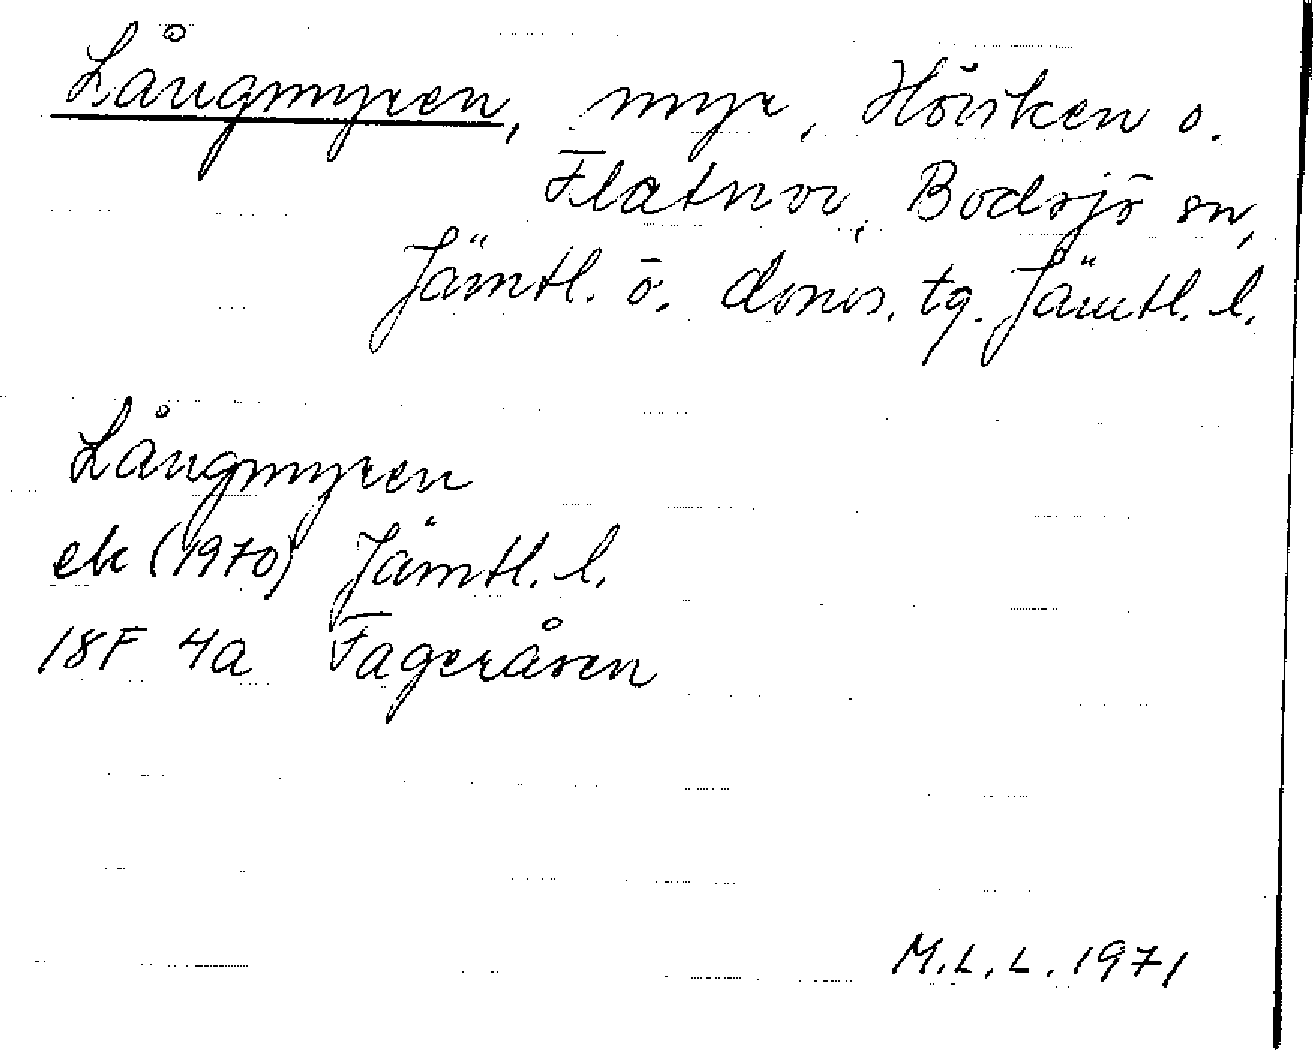 Långmyren, myr, Hövsken o.
Flatnor, Bodsjö sn,
Jämtl. ö. doms. tg. Jämtl. l.
Långmyren
ek (1970) Jämtl. l.
18F 4a Fageråsen
M.L.L. 1971